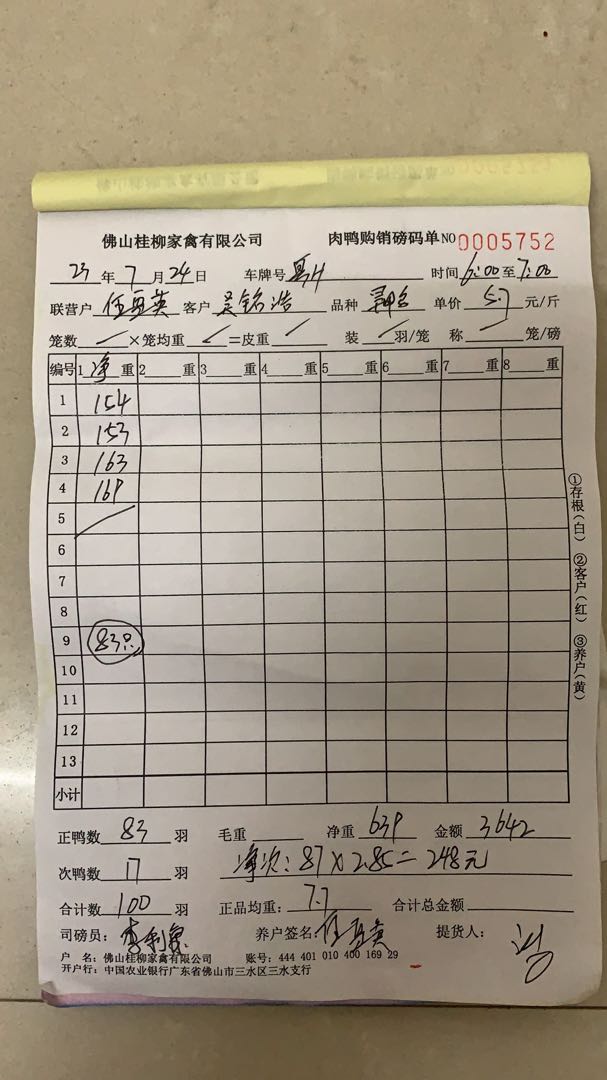 佛山桂柳家禽有限公司 肉鸭购销磅码单 NO 0005752
23年7月24日 车牌号 时间6:00至7:00
联营户 伍 英 客户 吴铭浩 品种 单价 5.7 元/斤
笼数 ×笼均重 =皮重 装 羽/笼 称 笼/磅
编号 1 净 重 2 重 3 重 4 重 5 重 6 重 7 重 8 重
1 154
2 153
3 163
4 169
5
6
7
8
9 83只
10
11
12
13
小计
正鸭数 83 羽 毛重 净重 639 金额 3642
次鸭数 17 羽 净次:87×2.85=248元
合计数 100 羽 正品均重: 7.7 合计总金额
司磅员: 李利 养户签名: 伍 英 提货人:
户 名: 佛山桂柳家禽有限公司 账号: 444 401 010 400 169 29
开户行: 中国农业银行广东省佛山市三水区三水支行
①存根(白) ②客户(红) ③养户(黄)